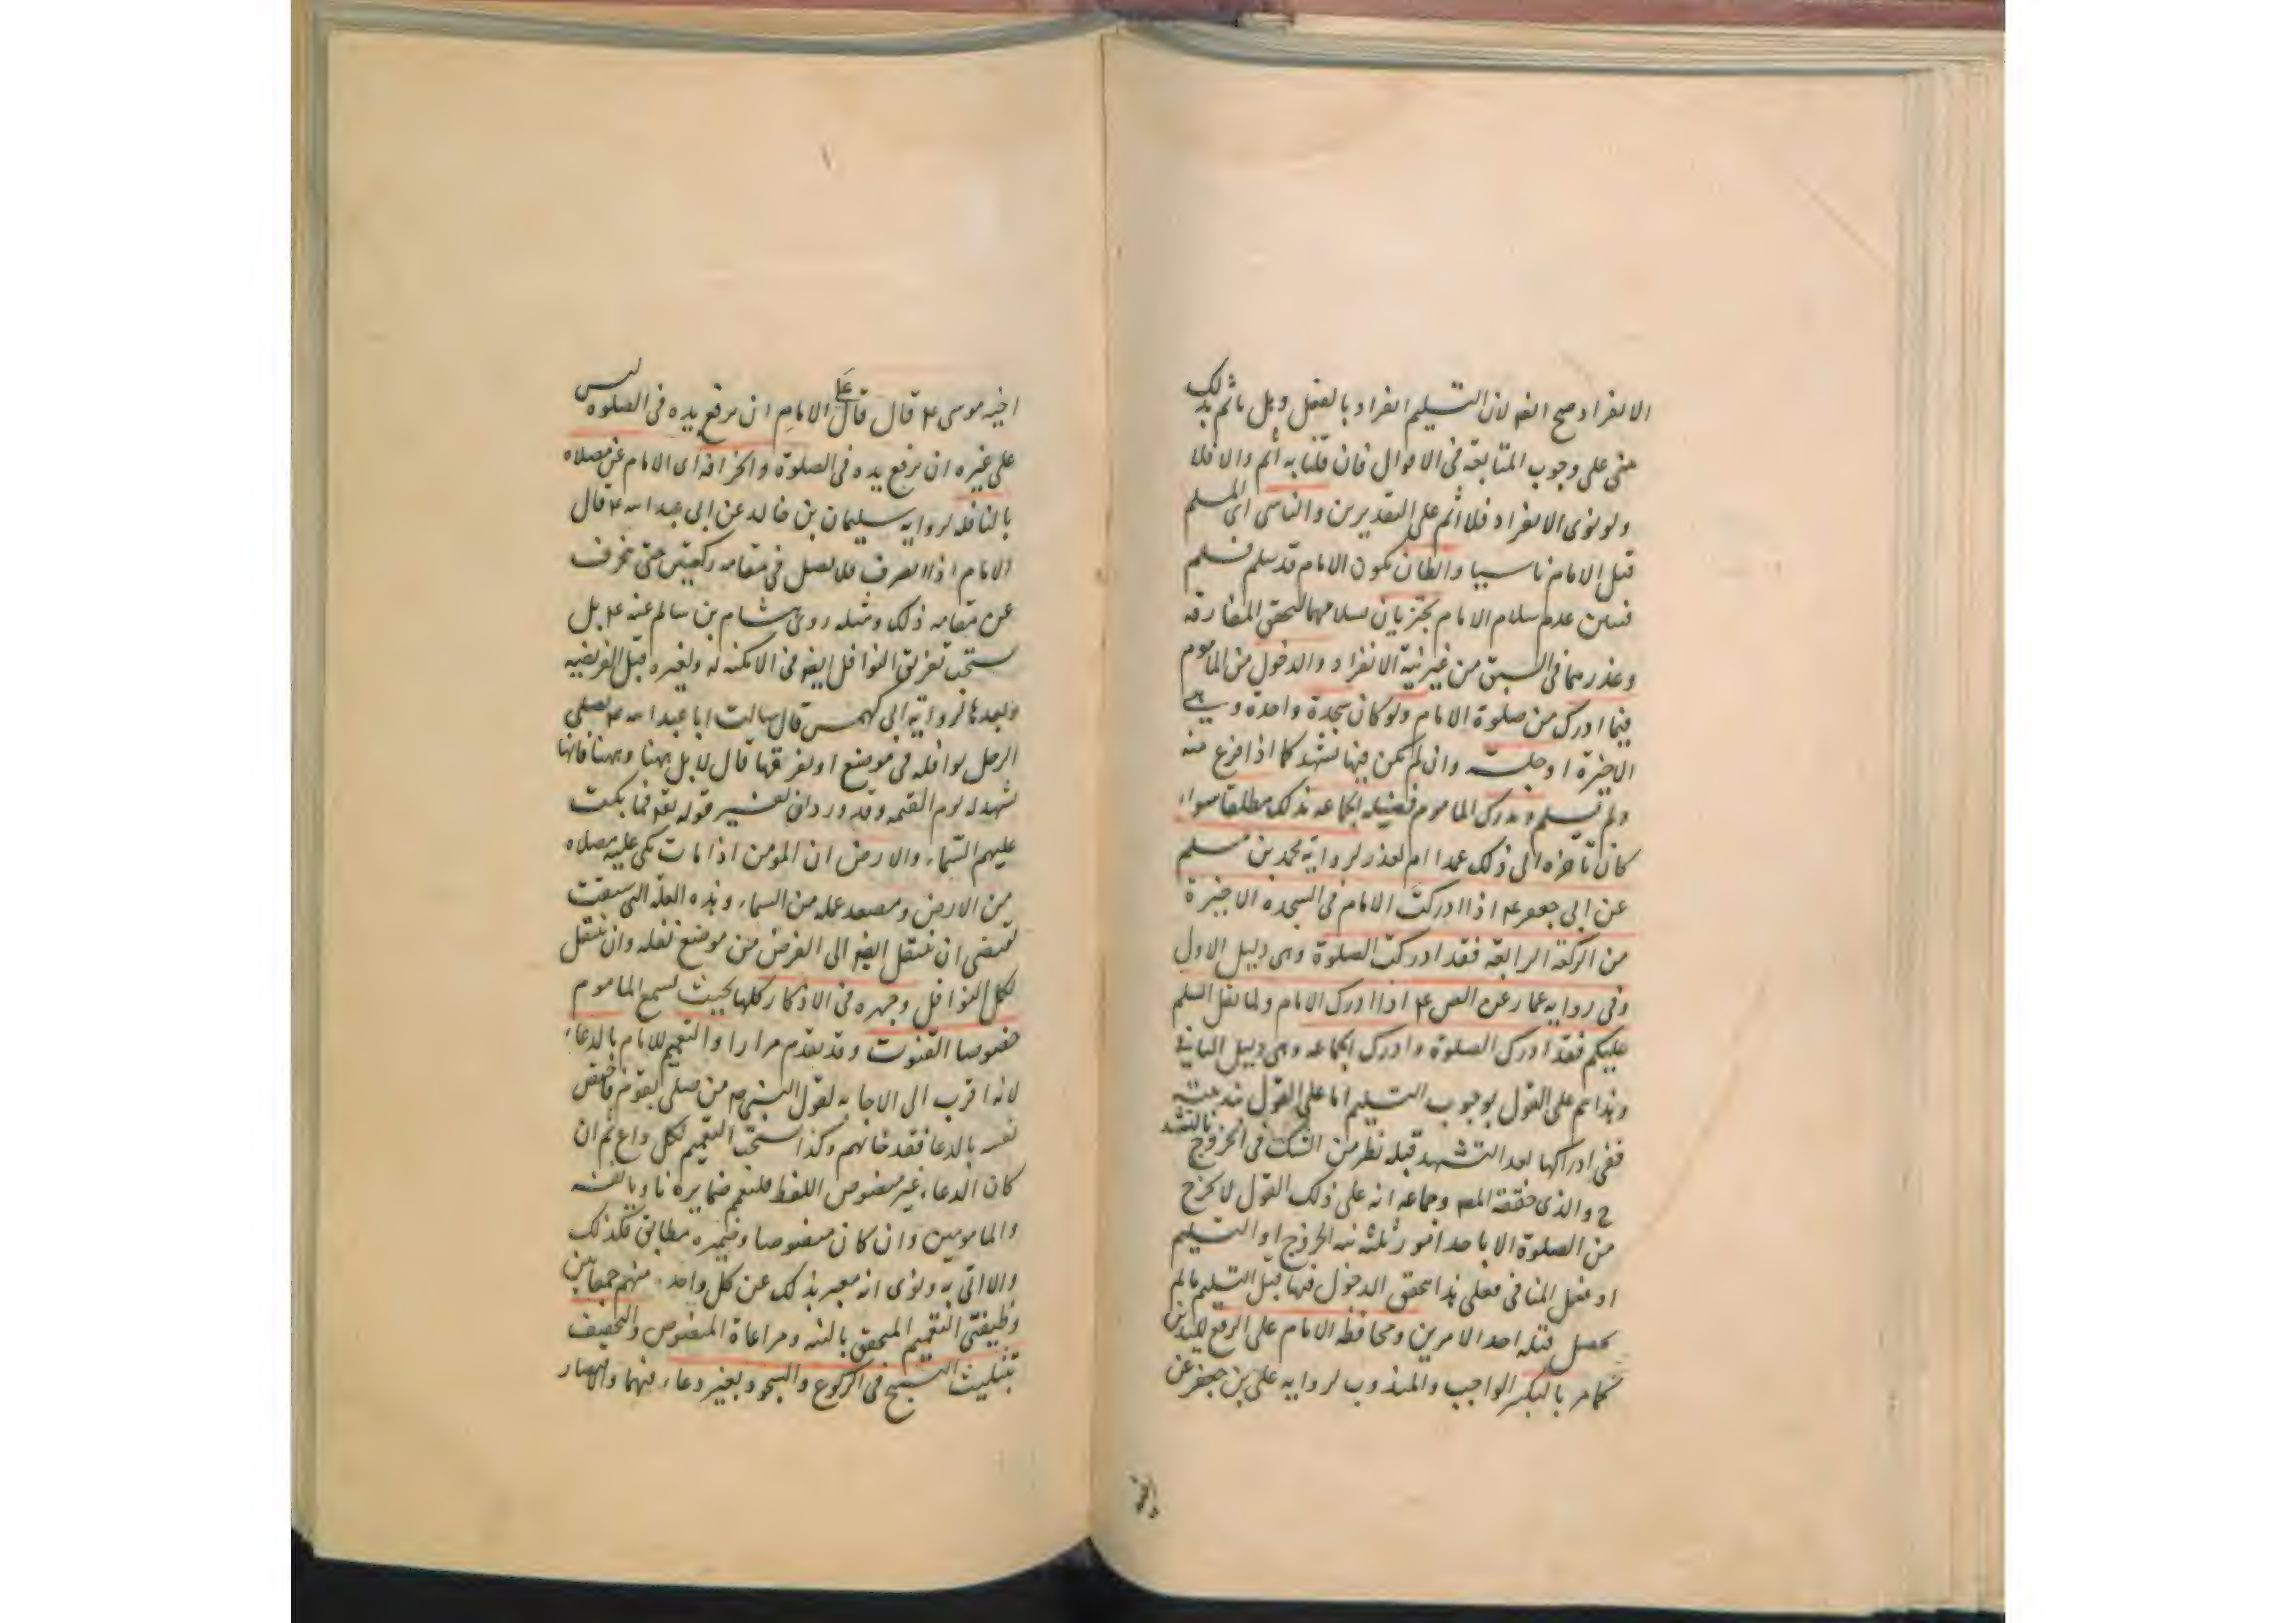 الانفراد صح ايضا لان التسليم انفراد بالفعل وهل ياثم بذلك
مبنى على وجوب المتابعة فى الاقوال فان قلنا به أثم والا فلا
ولو نوى الانفراد فلا أثم على التقديرين والناسى اى المسلم
قبل الامام ناسيا والظان كون الامام قد سلم فسلم
فتبين عدم سلام الامام يجتزيان بسلامهما لتحقق المفارقة
وعذرهما فى السبق من غير نية الانفراد والدخول من الماموم
فيما ادرك من صلوة الامام ولو كان سجدة واحدة وهى
الاخيرة او جلسة وان لم يكن فيها تشهد كما اذا فرغ منه
ولم يسلم ويدرك الماموم فضيلة الجماعه بذلك مطلقا سواء
كان تأخره الى ذلك عمدا ام لعذر لرواية محمد بن مسلم
عن ابى جعفر ع اذا ادركت الامام فى السجده الاخيرة
من الركعة الرابعة فقد ادركت الصلوة وهى دليل الاول
وفى رواية عمار عن الص ع اذا ادرك الامام ولما يقل السلم
عليكم فقد ادرك الصلوة وادرك الجماعه وهى دليل الثانى
وهذا يتم على القول بوجوب التسليم اما على القول بندبيته
ففى ادراكها بعد التشهد قبله نظر من الشك فى الخروج بالتشهد
ح والذى حققه المصـ وجماعه انه على ذلك القول لا يخرج
من الصلوة الا باحد امور ثلثه نية الخروج او التسليم
او فعل المنافى فعلى هذا يتحقق الدخول فيها قبل التسليم ما لم
يحصل قبله احد الامرين ومحافظة الامام على الرفع لليدين
كما مر بالتكبير الواجب والمندوب لرواية على بن جعفر عن
اخيه موسى ع قال قال على الامام ان يرفع يده فى الصلوة ليس
على غيره ان يرفع يده فى الصلوة وانحرافه اى الامام عن مصلاه
بالنافلة لرواية سليمان بن خالد عن ابى عبد الله ع قال
الامام اذا انصرف فلا يصل فى مقامه ركعتين حتى ينحرف
عن مقامه ذلك ومثله روى هشام بن سالم عنه ع بل
يستحب تفريق النوافل ايضا فى الامكنة له ولغيره قبل الفريضه
وبعدها لرواية ابى كهمس قال سالت ابا عبد الله ع يصلى
الرجل نوافله فى موضع او يفرقها قال لا بل ههنا وههنا فانها
تشهد له يوم القيمة وقد ورد فى تفسير قوله تع فما بكت
عليهم السماء والارض ان المؤمن اذا مات بكى عليه مصلاه
من الارض ومصعد عمله من السماء وهذه العلة التى سبقت
تقتضى ان ينتقل ايضا الى الفرض من موضع نفله وان ينتقل
لكل النوافل وجهره فى الاذكار كلها بحيث يسمع الماموم
خصوصا القنوت وقد تقدم مرارا والتعميم للامام بالدعاء
لانه اقرب الى الاجابه لقول النبى ص من صلى بقوم فاختص
نفسه بالدعا فقد خانهم وكذا يستحب التعميم لكل داع ثم ان
كان الدعاء غير منصوص اللفظ فليعم ضمايره ناويا نفسه
والمامومين وان كان منصوصا وضميره مطابق فكذلك
والا اتى به ونوى انه معبر بذلك عن كل واحد منهم جمعا بين
وظيفتى التعميم المتحقق بالنية ومراعاة المنصوص والتخفيف
بتثليث التسبيح فى الركوع والسجود بغير دعاء فيهما والاقتصار